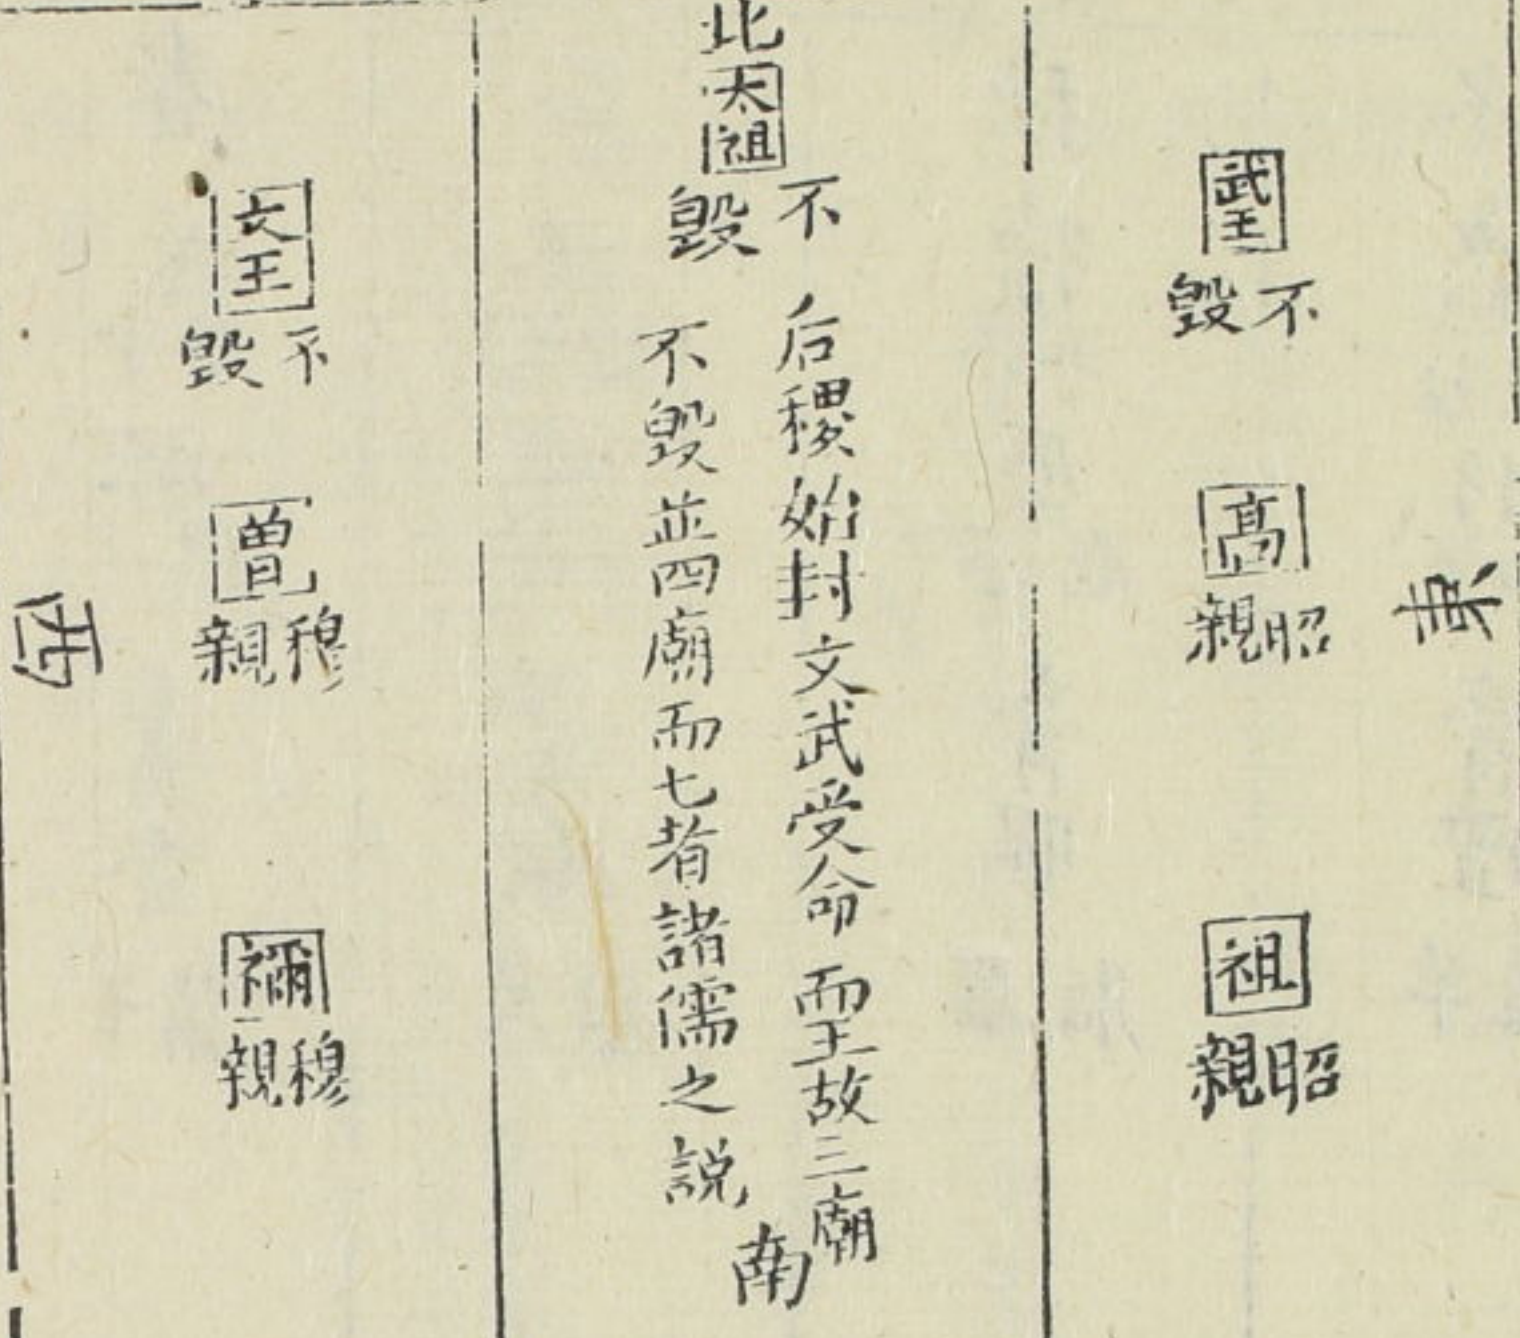 東
武王
不毀
高
昭親
祖
昭親
北
太祖
不毀
后稷始封文武受命而王故三廟
不毀並四廟而七者諸儒之説
南
文王
不毀
曾
穆親
禰
穆親
西